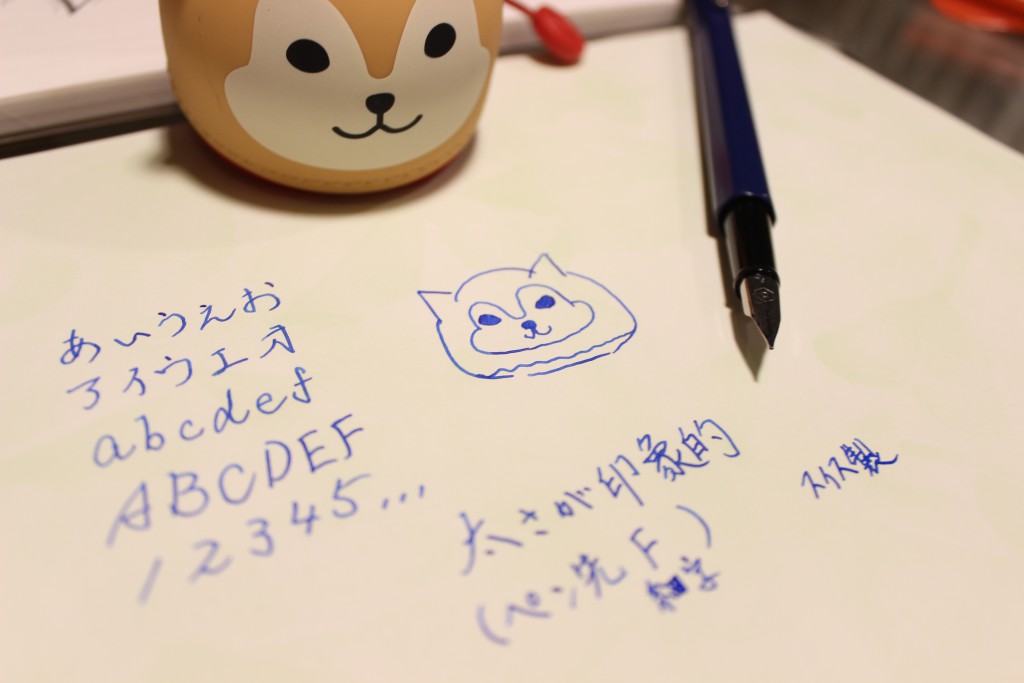 あいうえお
アイウエオ
abcdef
ABCDEF
12345...
太さが印象的
(ペン先F)
細字
スイス製